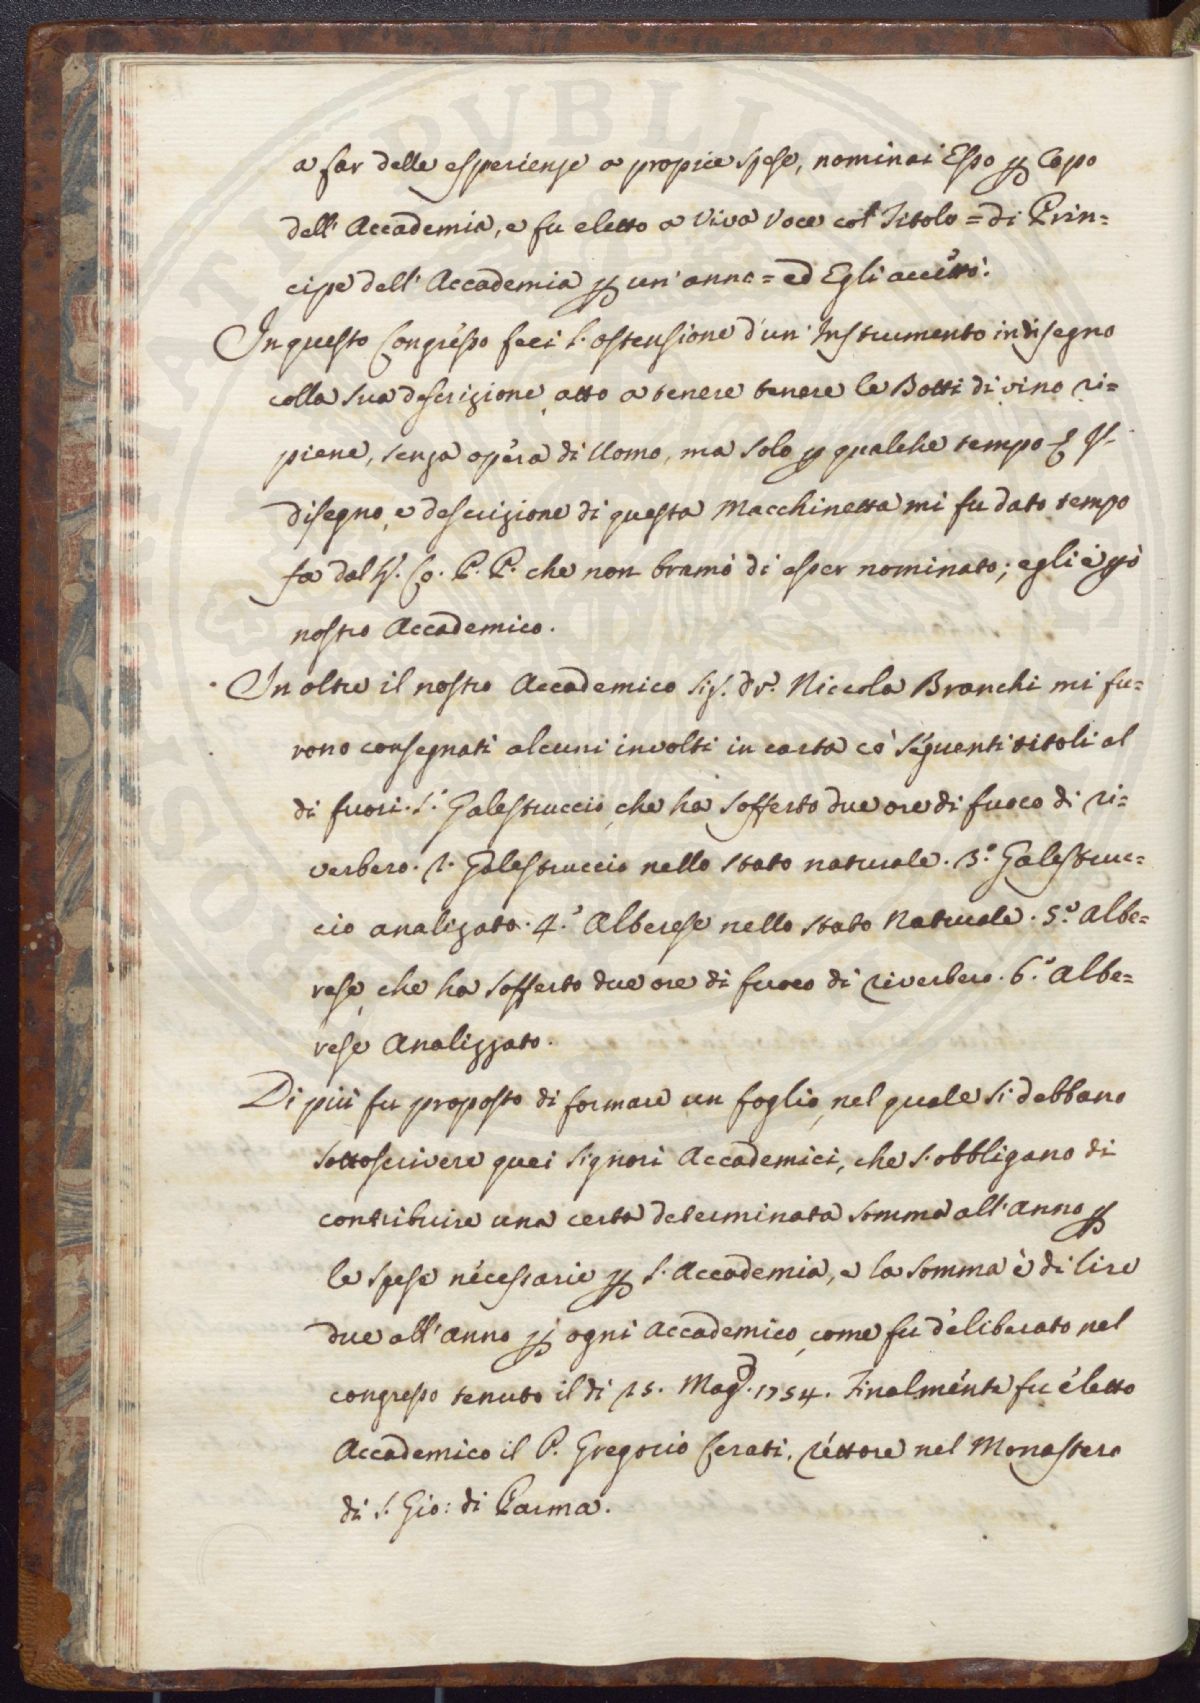 a far delle esperienze a proprie spese, nominai Esso p Capo
dell' Accademia, e fu eletto a Viva Voce col Titolo = di Prin=
cipe dell' Accademia p un' anno = ed Egli accettò.
In questo Congresso feci l' ostensione d'un' Instrumento in disegno
colla sua descrizione, atto a tenere tenere le Botti di vino ri=
piene, senza opera di Uomo, ma solo p qualche tempo
disegno, e descrizione di questa Macchinetta mi fu dato tempo
fa dal Co. P. P. che non bramò di esser nominato; egli è però
nostro Accademico.
In oltre il nostro Accademico Sig. Dr. Niccola Branchi mi fu=
rono consegnati alcuni involti in carta co' seguenti titoli al
di fuori. Galestruccio, che ha sofferto due ore di fuoco di ri=
verbero. 2. Galestruccio nello stato naturale. 3.° Galestruc=
cio analizato. 4.° Alberese nello stato Naturale. 5.° Albe=
rese, che ha sofferto due ore di fuoco di riverbero. 6.° Albe=
rese Analizzato.
Di più fu proposto di formare un foglio, nel quale si debbano
sottoscrivere quei Signori Accademici, che s'obbligano di
contribuire una certa determinata somma all' anno p
le spese necessarie p l' Accademia, e la somma è di lire
due all' anno p ogni Accademico, come fu deliberato nel
congresso tenuto il dì 25. Mag°. 1754. Finalmente fu eletto
Accademico il P. Gregorio Cerati, Rettore nel Monastero
di S. Gio: di Parma.